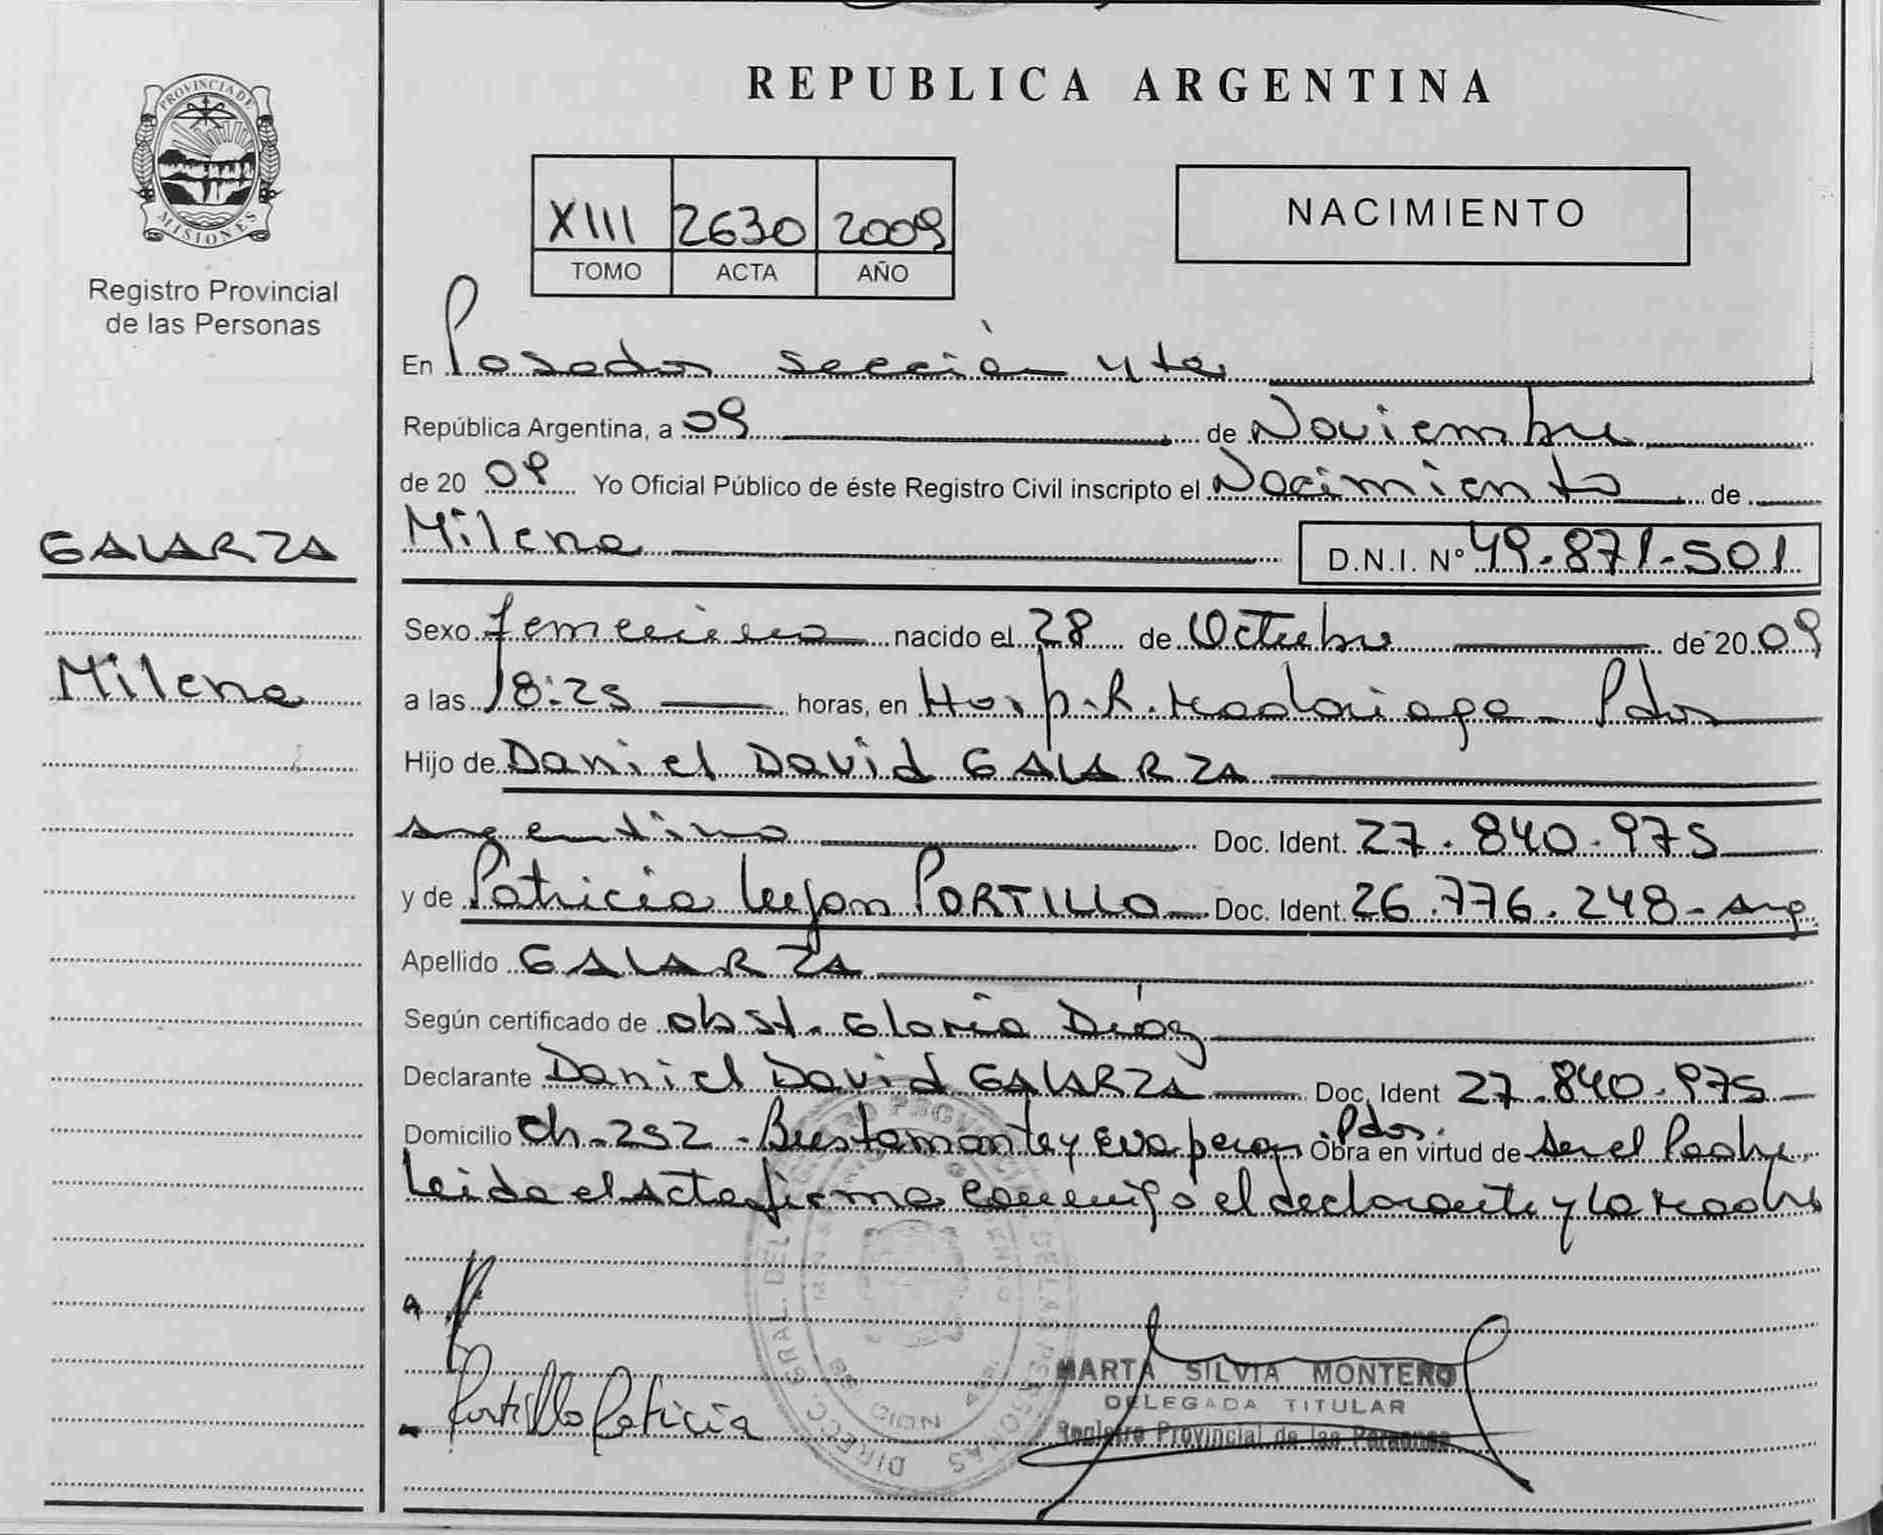 PROVINCIA DE
MISIONES
Registro Provincial
de las Personas
GALARZA
Milena
REPUBLICA ARGENTINA
XIII 2630 2009
TOMO ACTA AÑO
NACIMIENTO
En Posadas sección 4ta
República Argentina, a 09 de Noviembre
de 20 09 Yo Oficial Público de éste Registro Civil inscripto el Nacimiento de
Milena D.N.I. Nº 49.871.501
Sexo femenino nacido el 28 de Octubre de 20 09
a las 18:25 horas, en Hosp. R. Madariaga - Pdas
Hijo de Daniel David GALARZA
argentino Doc. Ident. 27.840.975
y de Patricia Lujan PORTILLO Doc. Ident. 26.776.248 - arg.
Apellido GALARZA
Según certificado de obst. Gloria Díaz
Declarante Daniel David GALARZA Doc. Ident 27.840.975
Domicilio Ch. 252 - Bustamante y Eva peron. Pdas. Obra en virtud de ser el Padre.
Leida el Acta firma conmigo el declarante y la Madre
Portillo Patricia
MARTA SILVIA MONTERO
DELEGADA TITULAR
Registro Provincial de las Personas